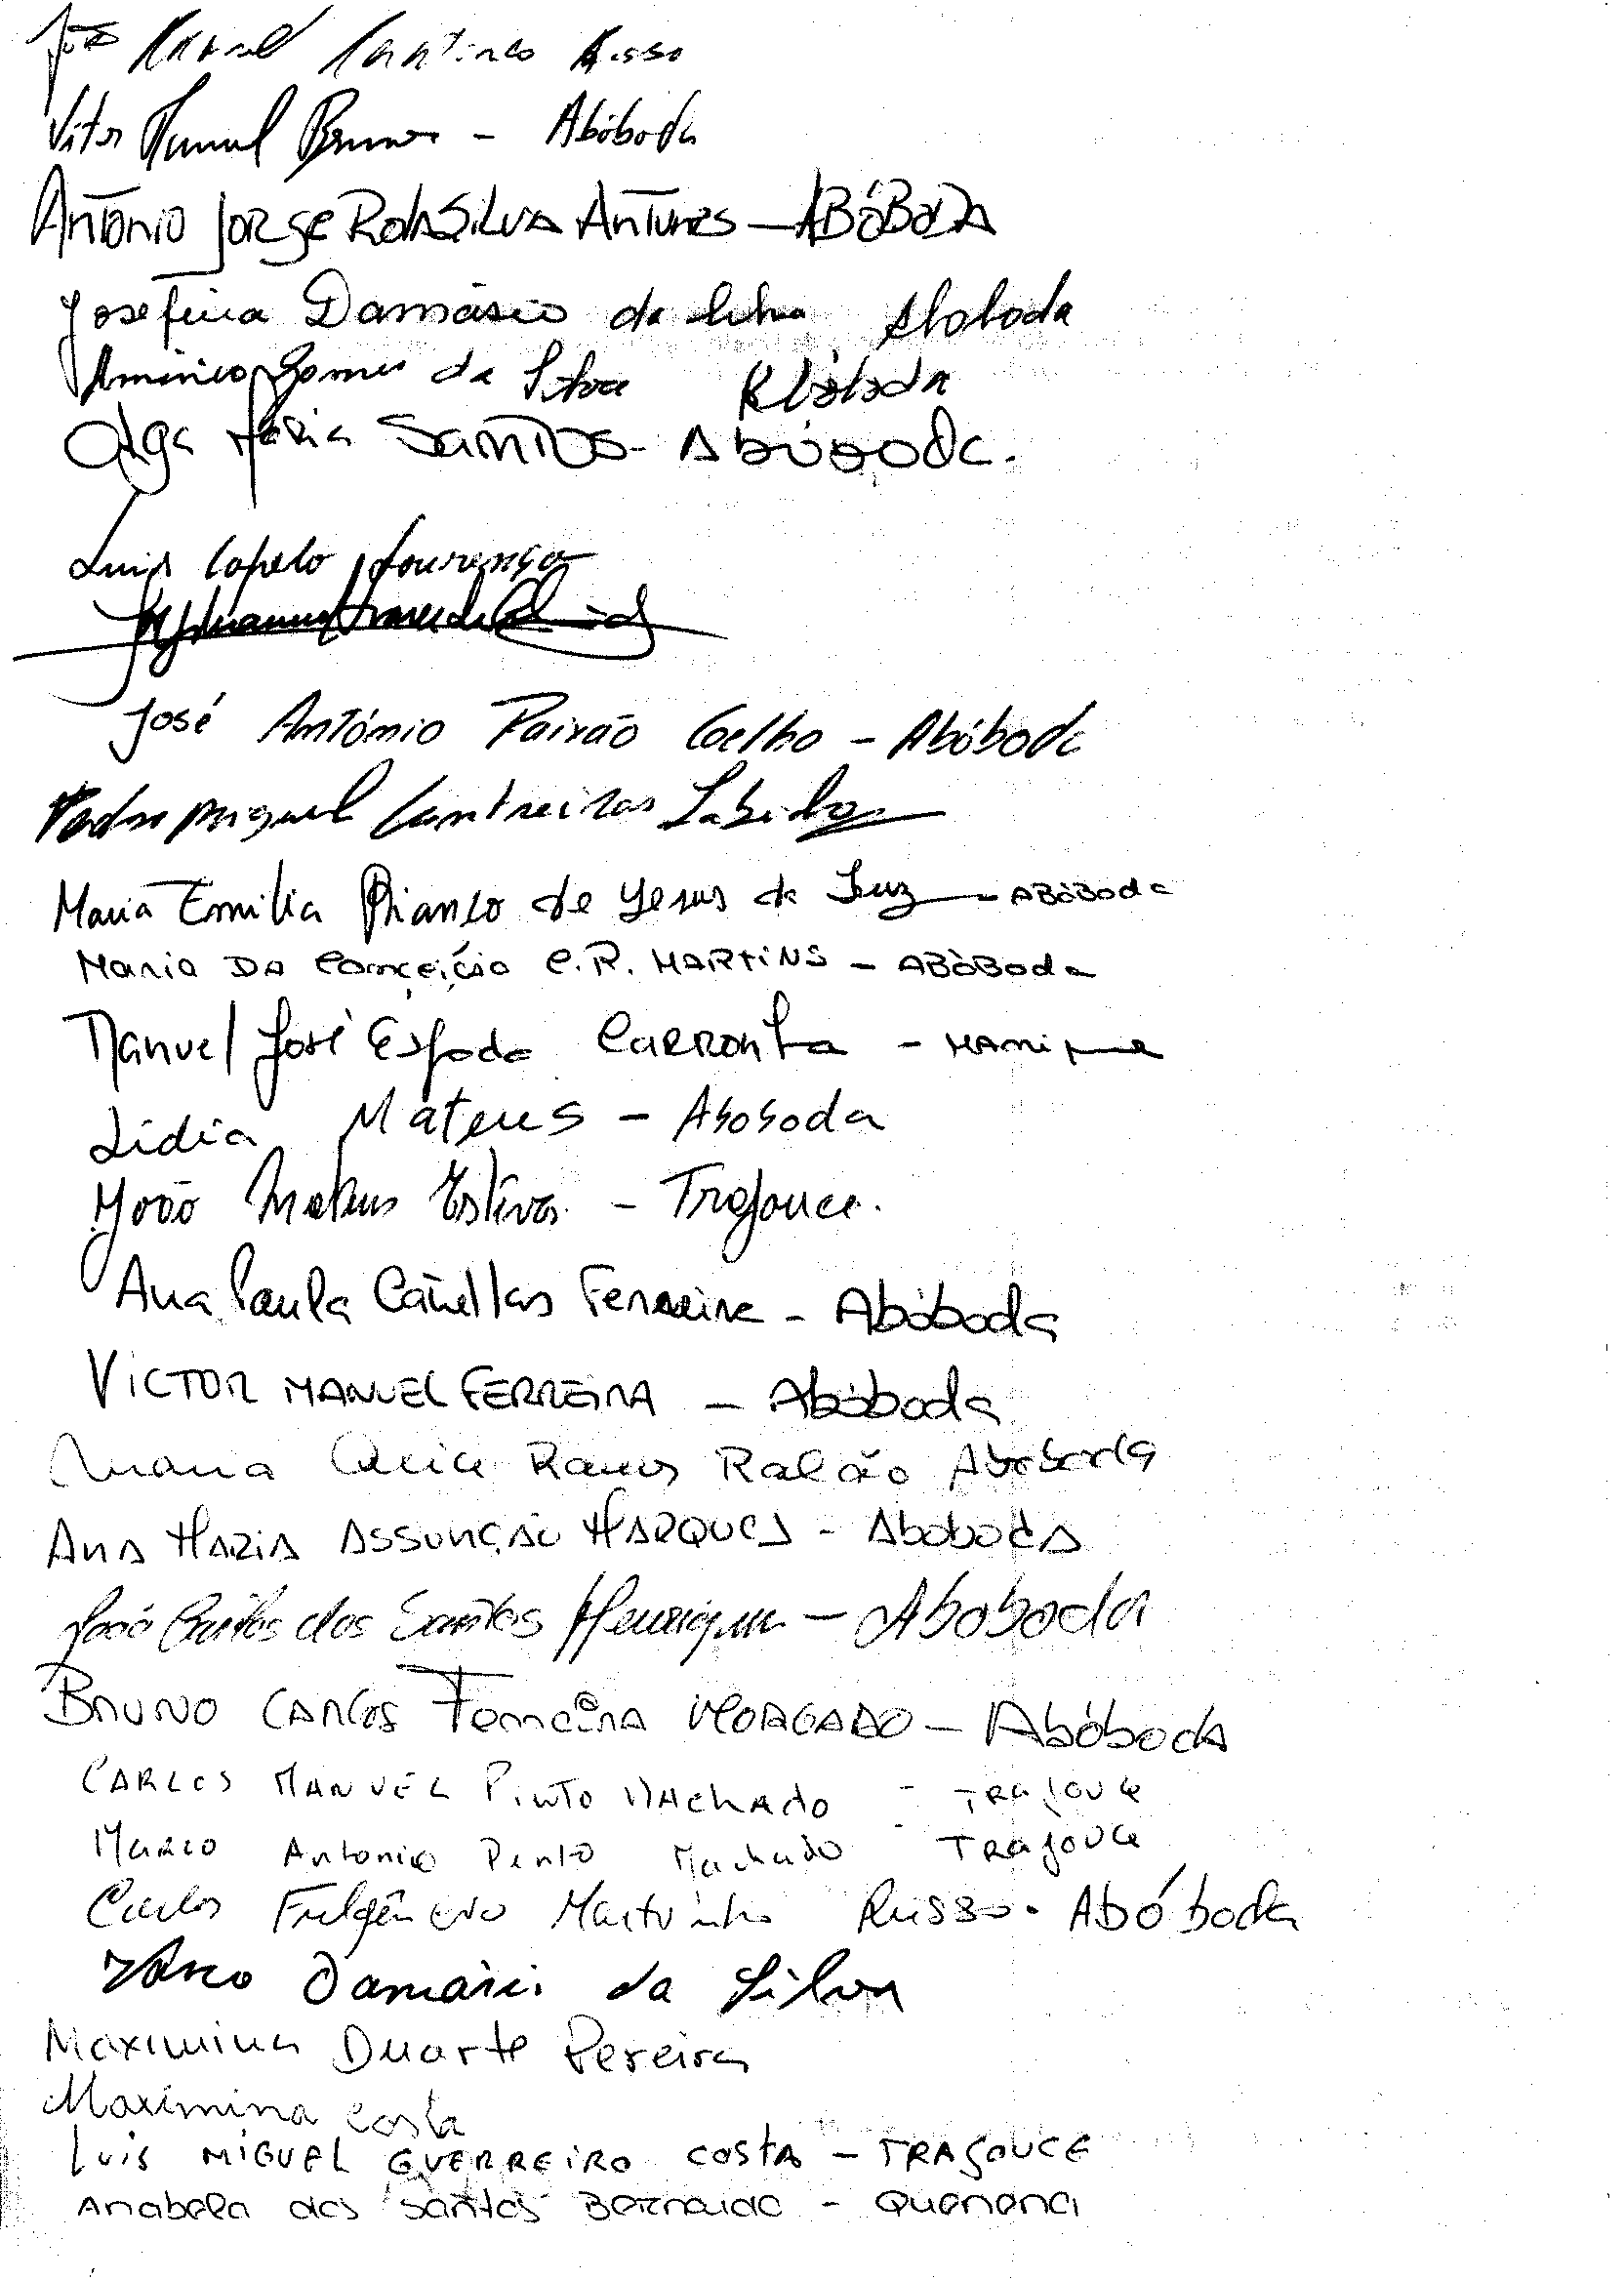 João Manuel Martinho Russo
Vitor Manuel - Abóboda
António Jorge Ro da Silva Antunes - ABÓBODA
Josefina Damásio da Silva Aboboda
Américo Gomes da Silva Abóboda
Olga Maria Santos - Abóboda.
Luis Capelo Lourenço
José António Paixão Coelho - Abóboda
Pedro Miguel Cantreiras
Maria Emilia de Jesus da Luz - ABÓBODA
Maria DA Conceição C.R. MARTINS - ABÒBODA
Manuel José Espada - Manique
Lidia Mateus - Aboboda
João Mateus Esteves - Trajouce.
Ana Paula Ferreira - Abóboda
VICTOR MANUEL FERREIRA - Abóboda
Maria Ramos Ralão Aboboda
ANA MARIA ASSUNÇÃO MARQUES - Aboboda
João Carlos dos Santos Henriques - Aboboda
BRUNO CARLOS Ferreira MORGADO - Abóboda
CARLOS MANUEL PINTO MAchAdo - TRAJOUCE
MARCO Antonio Pinto Machado TRAJOUCE
Carlos Fulgêncio Martinho Russo - Abóboda
Damásio da Silva
Maximina Duarte Pereira
Maximina Costa
LUIS MIGUEL GUERREIRO COSTA - TRAJOUCE
Anabela dos Santos Bernardo -